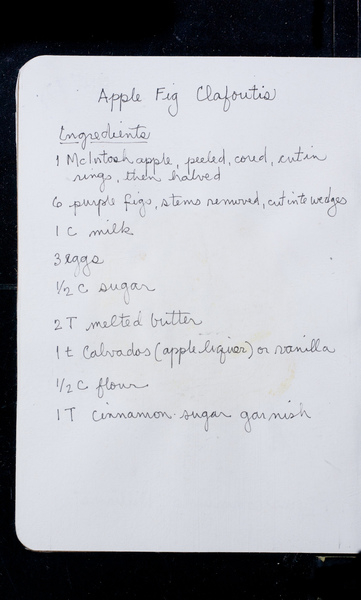 Apple Fig Clafoutis
Ingredients
1 McIntosh apple, peeled, cored, cut in
rings, then halved
6 purple figs, stems removed, cut into wedges
1 c milk
3 eggs
1/2 c sugar
2 T melted butter
1 t Calvados (apple liquor) or vanilla
1/2 c flour
1 T cinnamon-sugar garnish